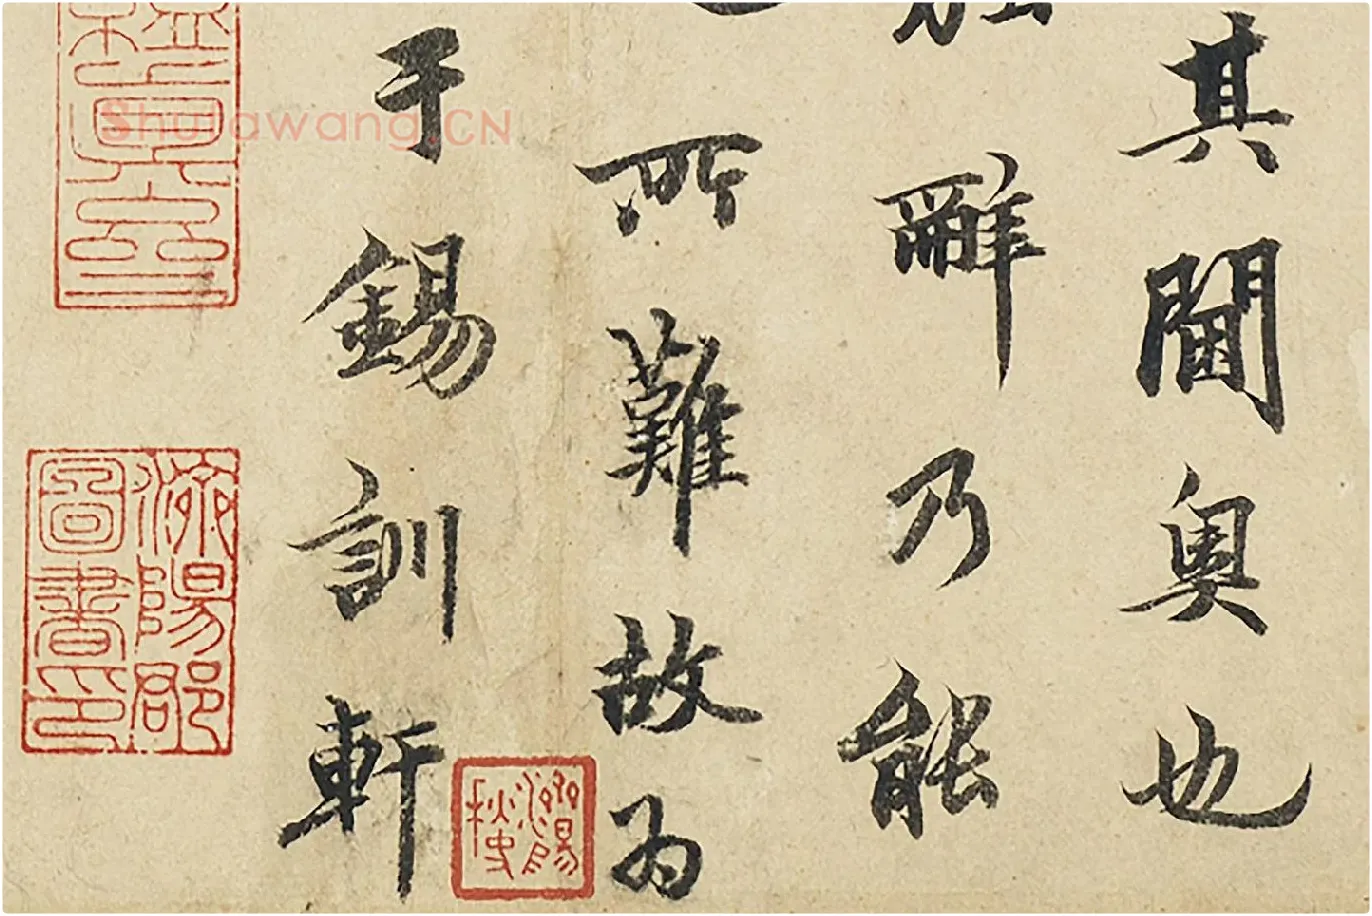 其閫奥也
辭乃能
所難故為
于錫訓軒
陽郡
圖書印
Shufawang.CN